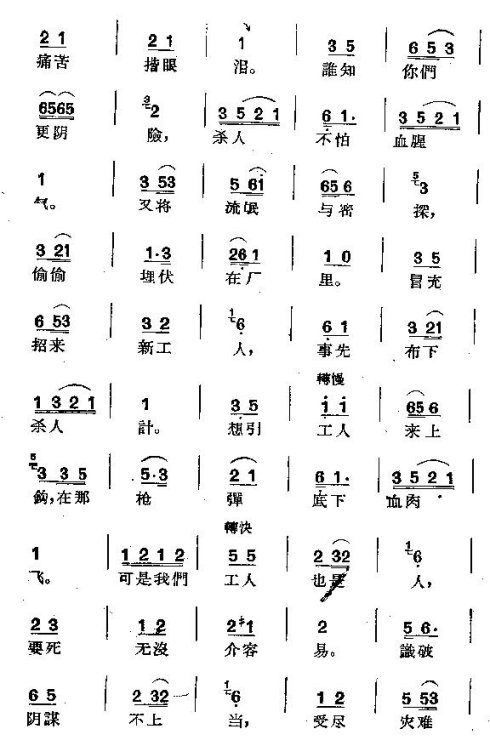 2 1 | 2 1 | 1 | 3 5 | 6 5 3
痛苦 揩眼 泪。 誰知 你們
6565 | 3 2 | 3 5 2 1 | 6 1· | 3 5 2 1
更阴 險, 杀人 不怕 血腥
1 | 3 53 | 5 61 | 65 6 | 5 3
气。 又将 流氓 与密 探,
3 21 | 1·3 | 26 1 | 1 0 | 3 5
偷偷 埋伏 在厂 里。 冒充
6 53 | 3 2 | 1 6 | 6 1 | 3 21
招来 新工 人, 事先 布下
轉慢
1 3 2 1 | 1 | 3 5 | 1 1 | 65 6
杀人 計。 想引 工人 来上
5 3 3 5 | 5·3 | 2 1 | 6 1· | 3 5 2 1
鈎,在那 枪 彈 底下 血肉
轉快
1 | 1 2 1 2 | 5 5 | 2 32 | 1 6
飞。 可是我們 工人 也是 人,
2 3 | 1 2 | 2 #1 | 2 | 5 6·
要死 无沒 介容 易。 識破
6 5 | 2 32 | 1 6 | 1 2 | 5 53
阴謀 不上 当, 受尽 灾难